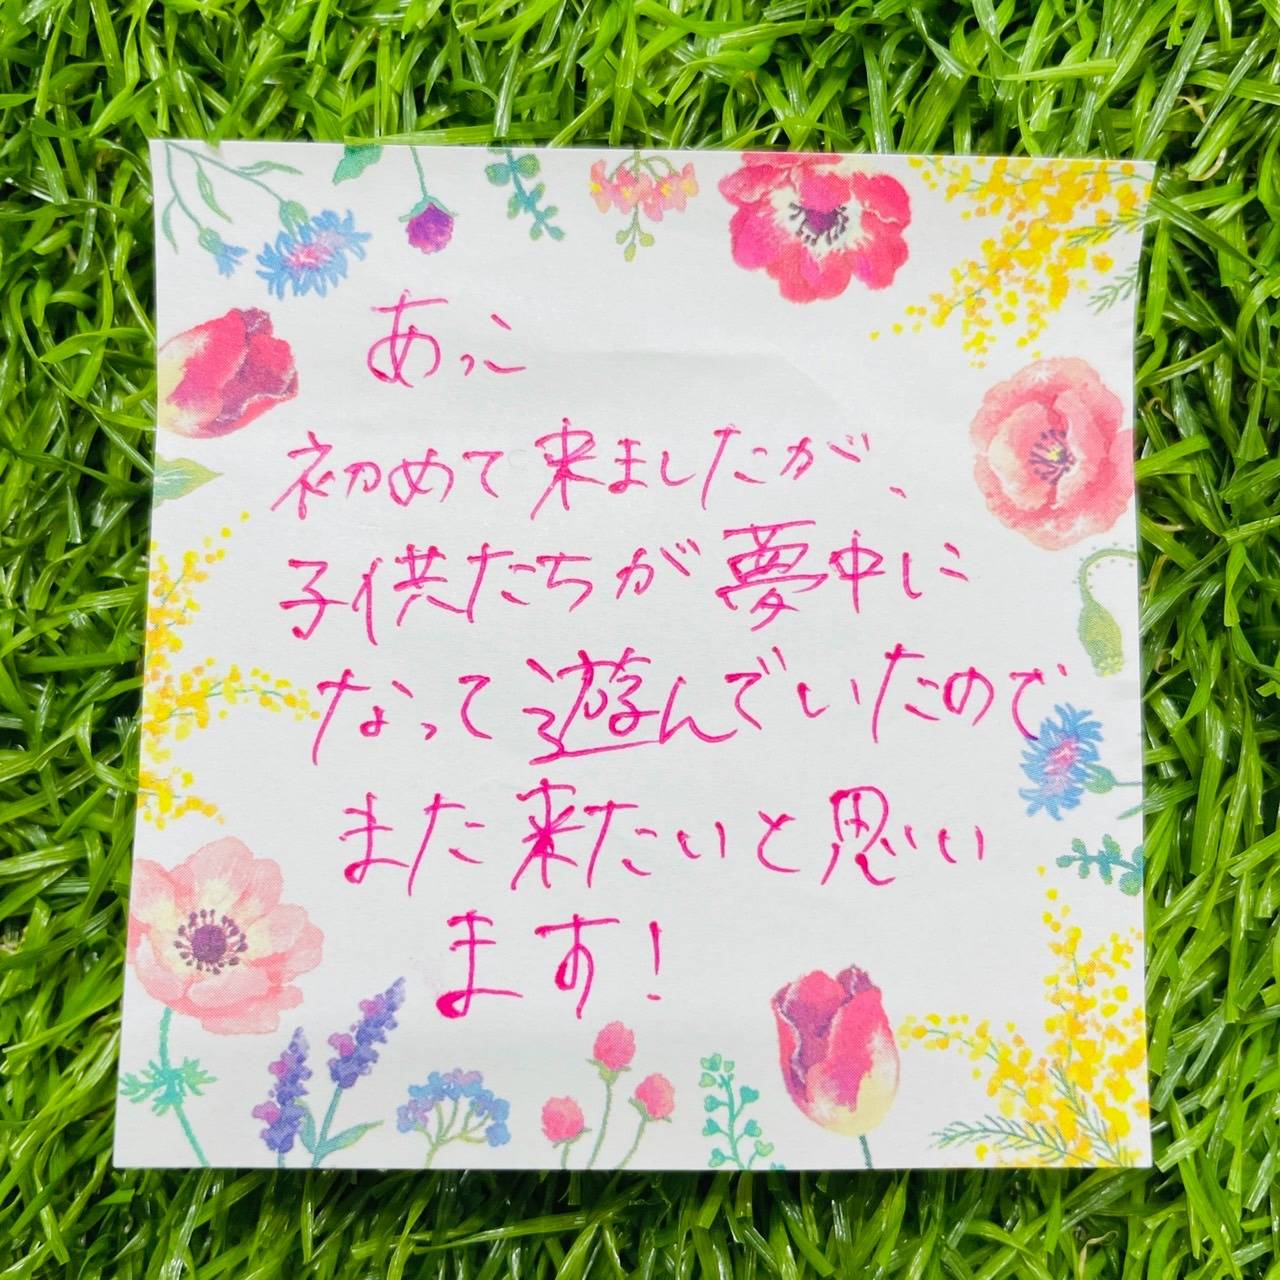 あっこ
初めて来ましたが、
子供たちが夢中に
なって遊んでいたので
また来たいと思い
ます!